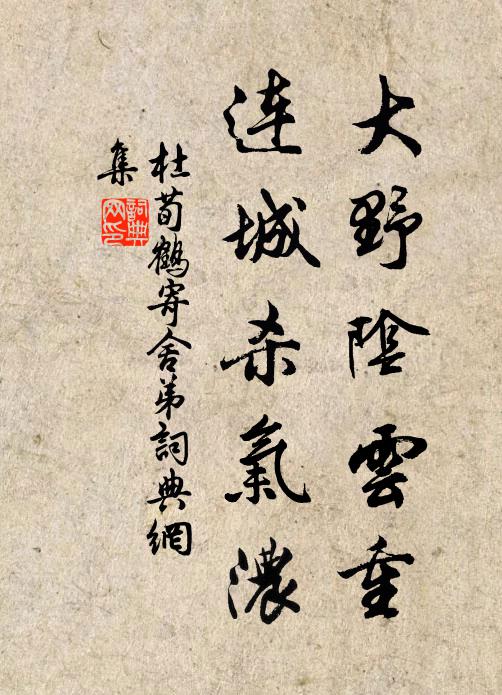 大野陰雲重
連城杀氣濃
杜荀鶴寄舍弟詞典網
集
詞典
网印